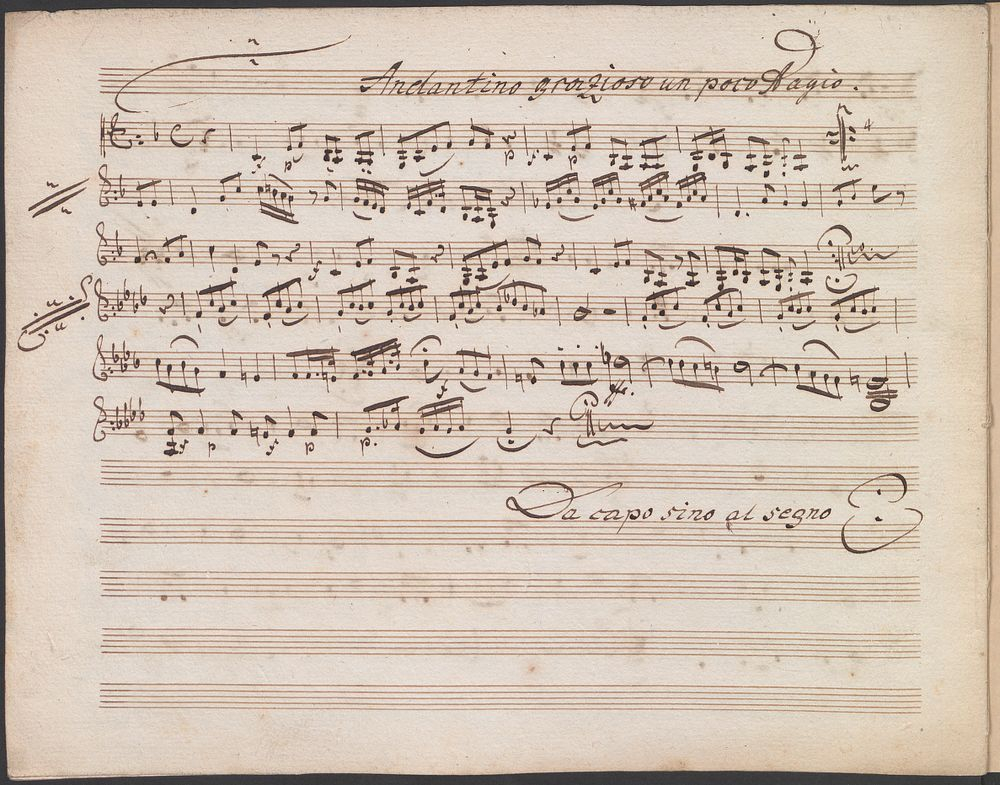 Andantino grazioso un poco Adagio.
Da capo sino al segno